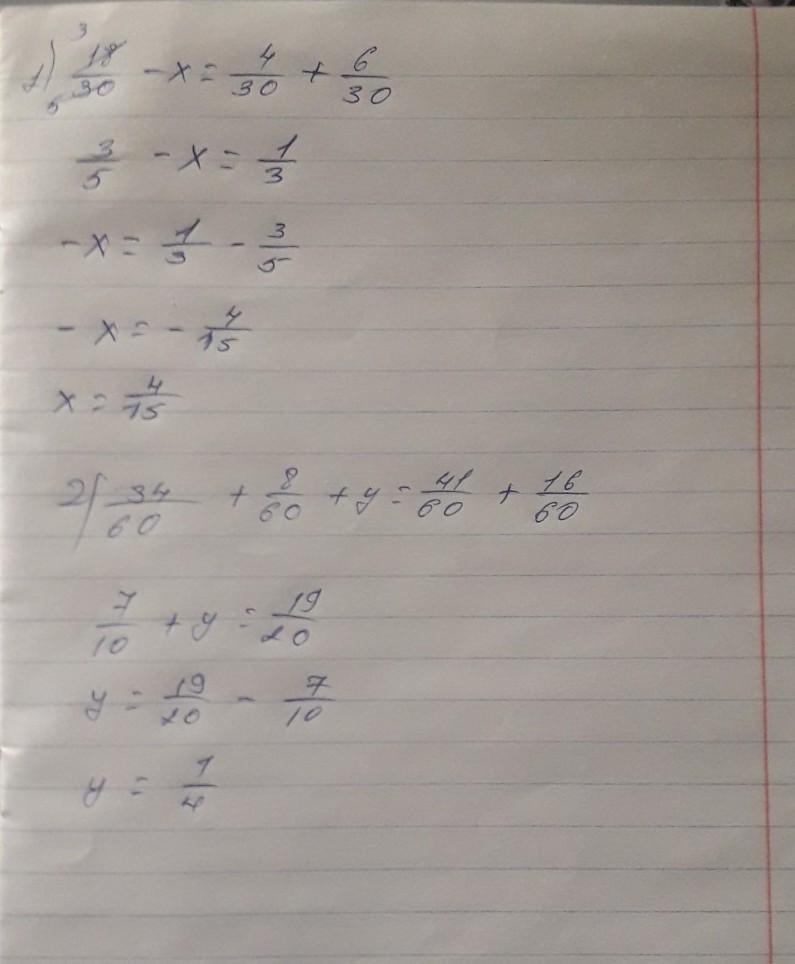 1) 18/30 - x = 4/30 + 6/30
3 5
3/5 - x = 1/3
-x = 1/3 - 3/5
- x = - 4/15
x = 4/15
2) 34/60 + 8/60 + y = 41/60 + 16/60
7/10 + y = 19/20
y = 19/20 - 7/10
y = 1/4